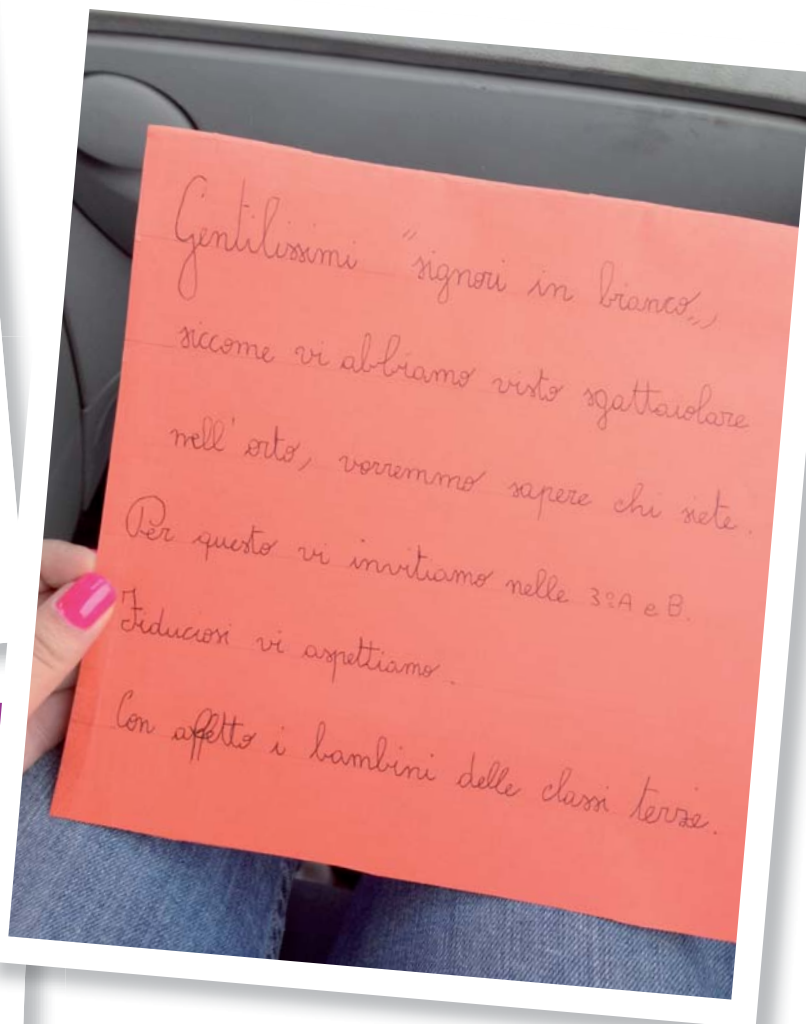 Gentilissimi "signori in bianco„,
siccome vi abbiamo visto sgattaiolare
nell'orto, vorremmo sapere chi siete.
Per questo vi invitiamo nelle 3°A e B.
Fiduciosi vi aspettiamo.
Con affetto i bambini delle classi terze.